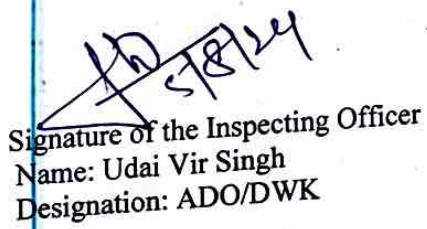 5/8/24
Signature of the Inspecting Officer
Name: Udai Vir Singh
Designation: ADO/DWK